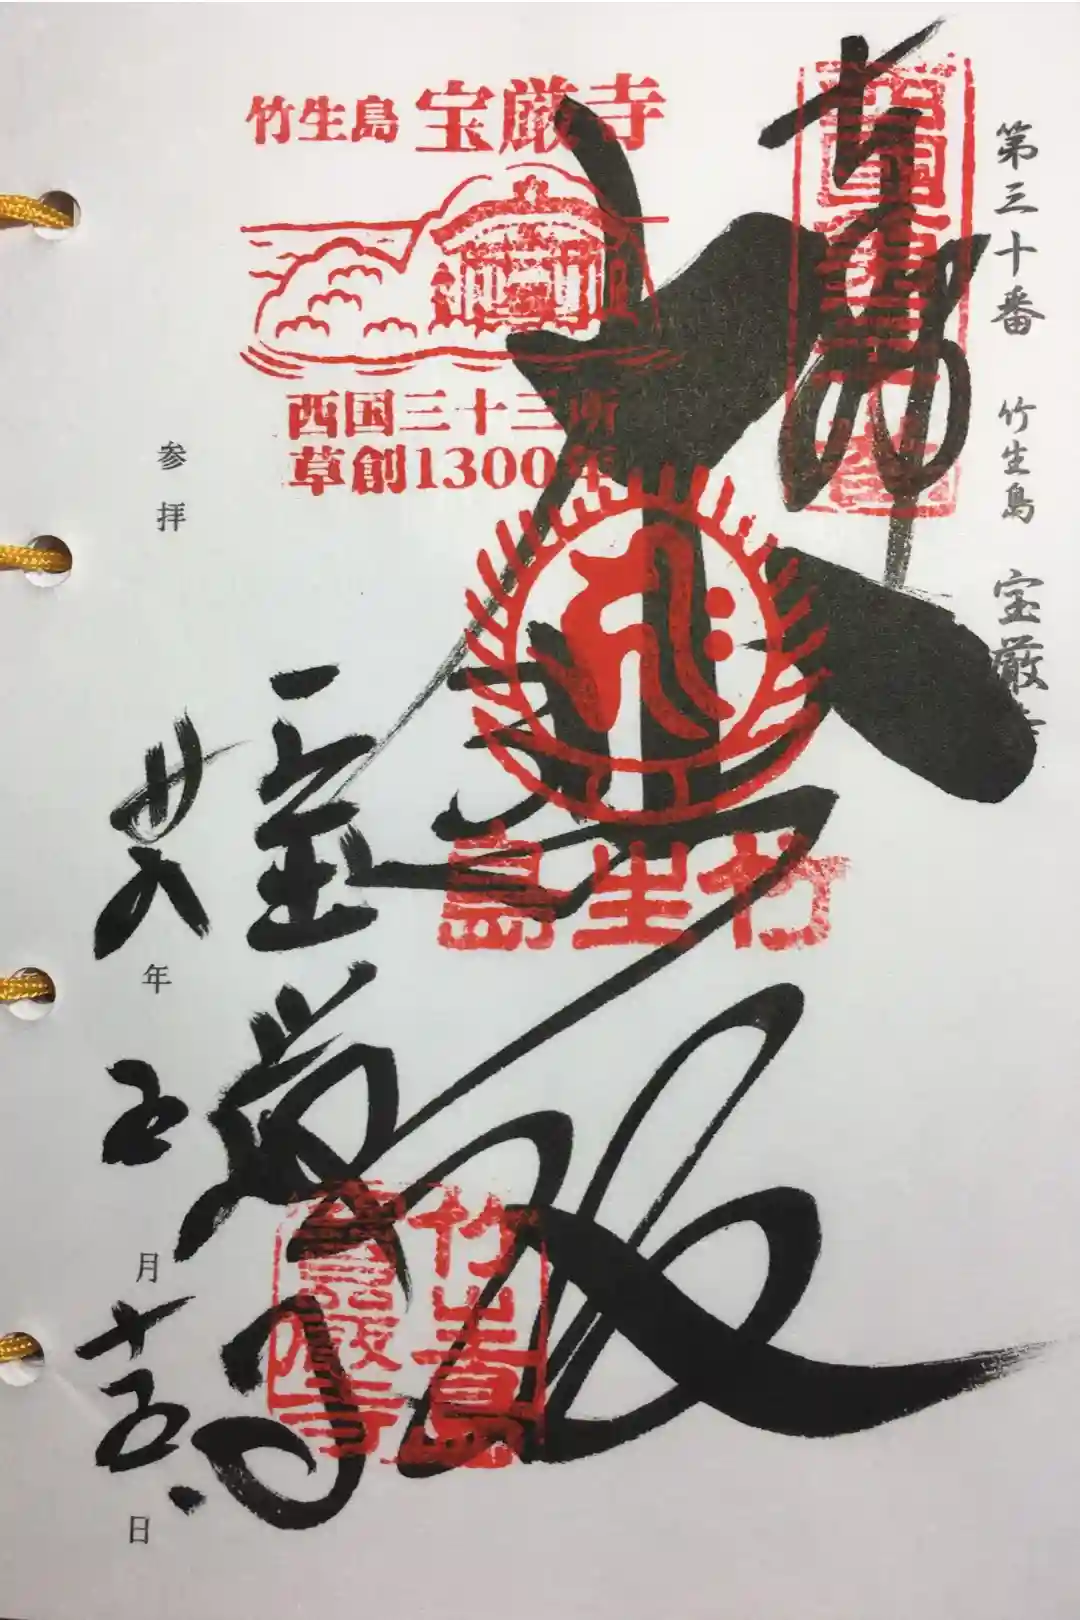 第三十番 竹生島 宝厳寺
奉拝
大悲殿
竹生島 宝厳寺
西国三十三所
草創1300年
竹生島
寶厳寺
竹生島
寶厳寺
参拝 廿八年 五月 十五日